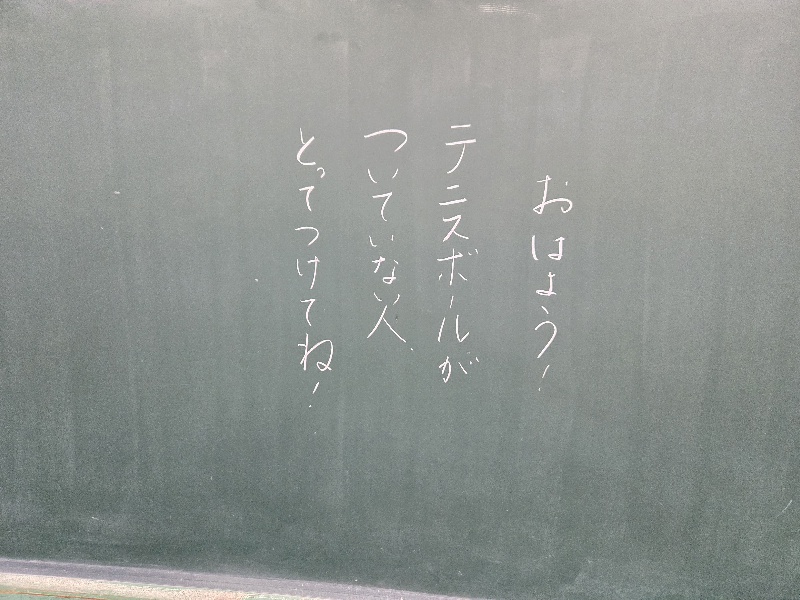 おはよう!
テニスボールが
ついていない人、
とってつけてね!